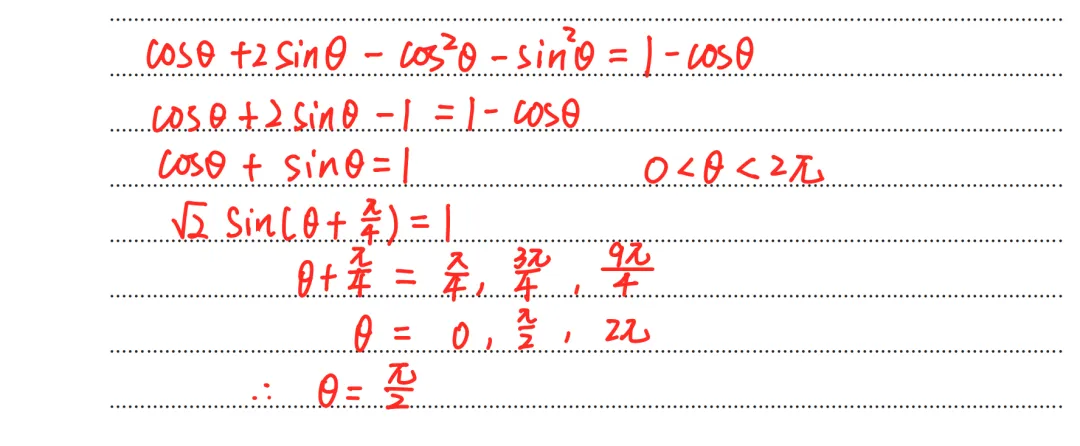 cosθ + 2 sinθ − cos²θ − sin²θ = 1 − cosθ
cosθ + 2 sinθ − 1 = 1 − cosθ
cosθ + sinθ = 1 0 < θ < 2π
√2 sin(θ + π/4) = 1
θ + π/4 = π/4, 3π/4, 9π/4
θ = 0, π/2, 2π
∴ θ = π/2